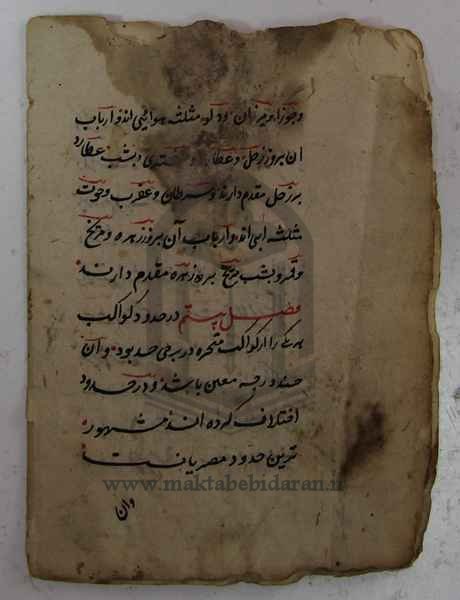 وجوزا و میزان و دلو مثلثه هوائی اند و ارباب
ان بروز زحل و عطارد و مشتری و بشب عطارد
بر زحل مقدم دارند و سرطان و عقرب و حوت
مثلثه ابی اند و ارباب آن بروز زهره و مریخ
و قمر و بشب مریخ بر زهره مقدم دارند
فصل بیستم در حدود کواکب
هر یکی را از کواکب متحیره در برجی حد بود و آن
چند درجه معین باشد و در حدود
اختلاف کرده اند مشهور
ترین حدود مصریانست
وان
www.maktabebidaran.ir